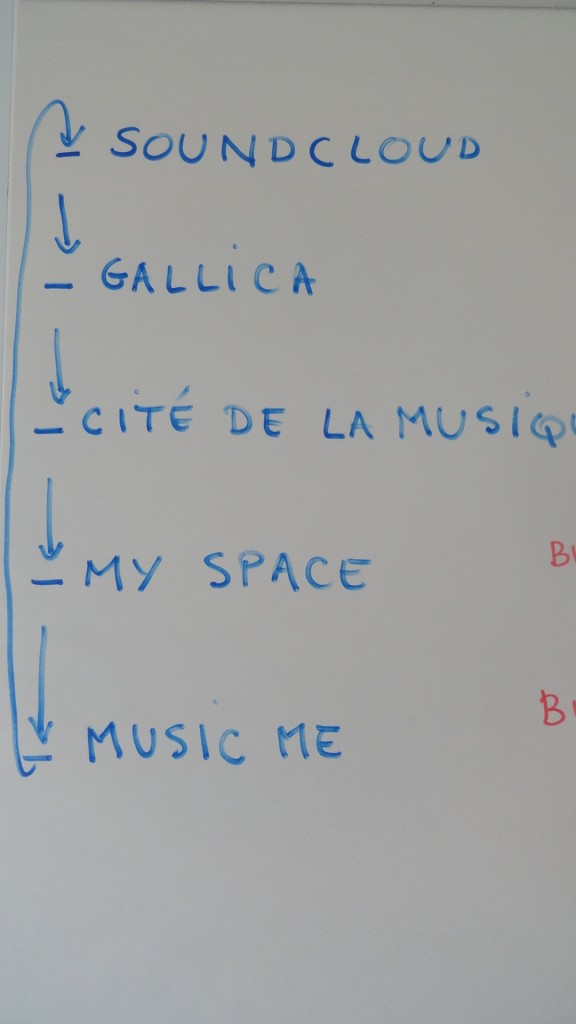 - SOUNDCLOUD
- GALLICA
- CITÉ DE LA MUSIQU
- MY SPACE
- MUSIC ME